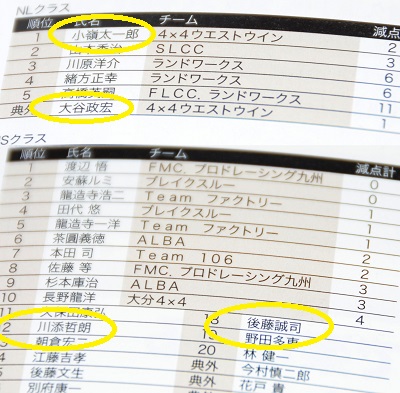 NLクラス
順位 氏名 チーム 減点
1 小嶺太一郎 4×4ウエストウイン 2
2 山本秀治 SLCC 3
3 川原洋介 ランドワークス 3
4 緒方正幸 ランドワークス 6
5 高橋英嗣 FLCC. ランドワークス 11
典外 大谷政宏 4×4ウエストウイン 1
Sクラス
順位 氏名 チーム 減点計
1 渡辺 悟 FMC. プロドレーシング九州 0
2 安蘇ルミ ブレイクスルー 0
3 龍造寺浩二 Team ファクトリー 1
4 田代 悠 ブレイクスルー 1
5 龍造寺一洋 Team ファクトリー 1
6 茶圓義徳 ALBA 1
7 本田 司 Team 106 2
8 佐藤 等 FMC. プロドレーシング九州 2
9 杉本庫治 ALBA 3
10 長野龍洋 大分4×4 3
11 久保田康弘 4
2 川添哲朗
3 朝倉宏二
4 江藤吉孝
5 後藤文生
別府康一
18 後藤誠司
19 野田多恵
20 林 健一
典外 今村慎二郎
典外 花戸 貴